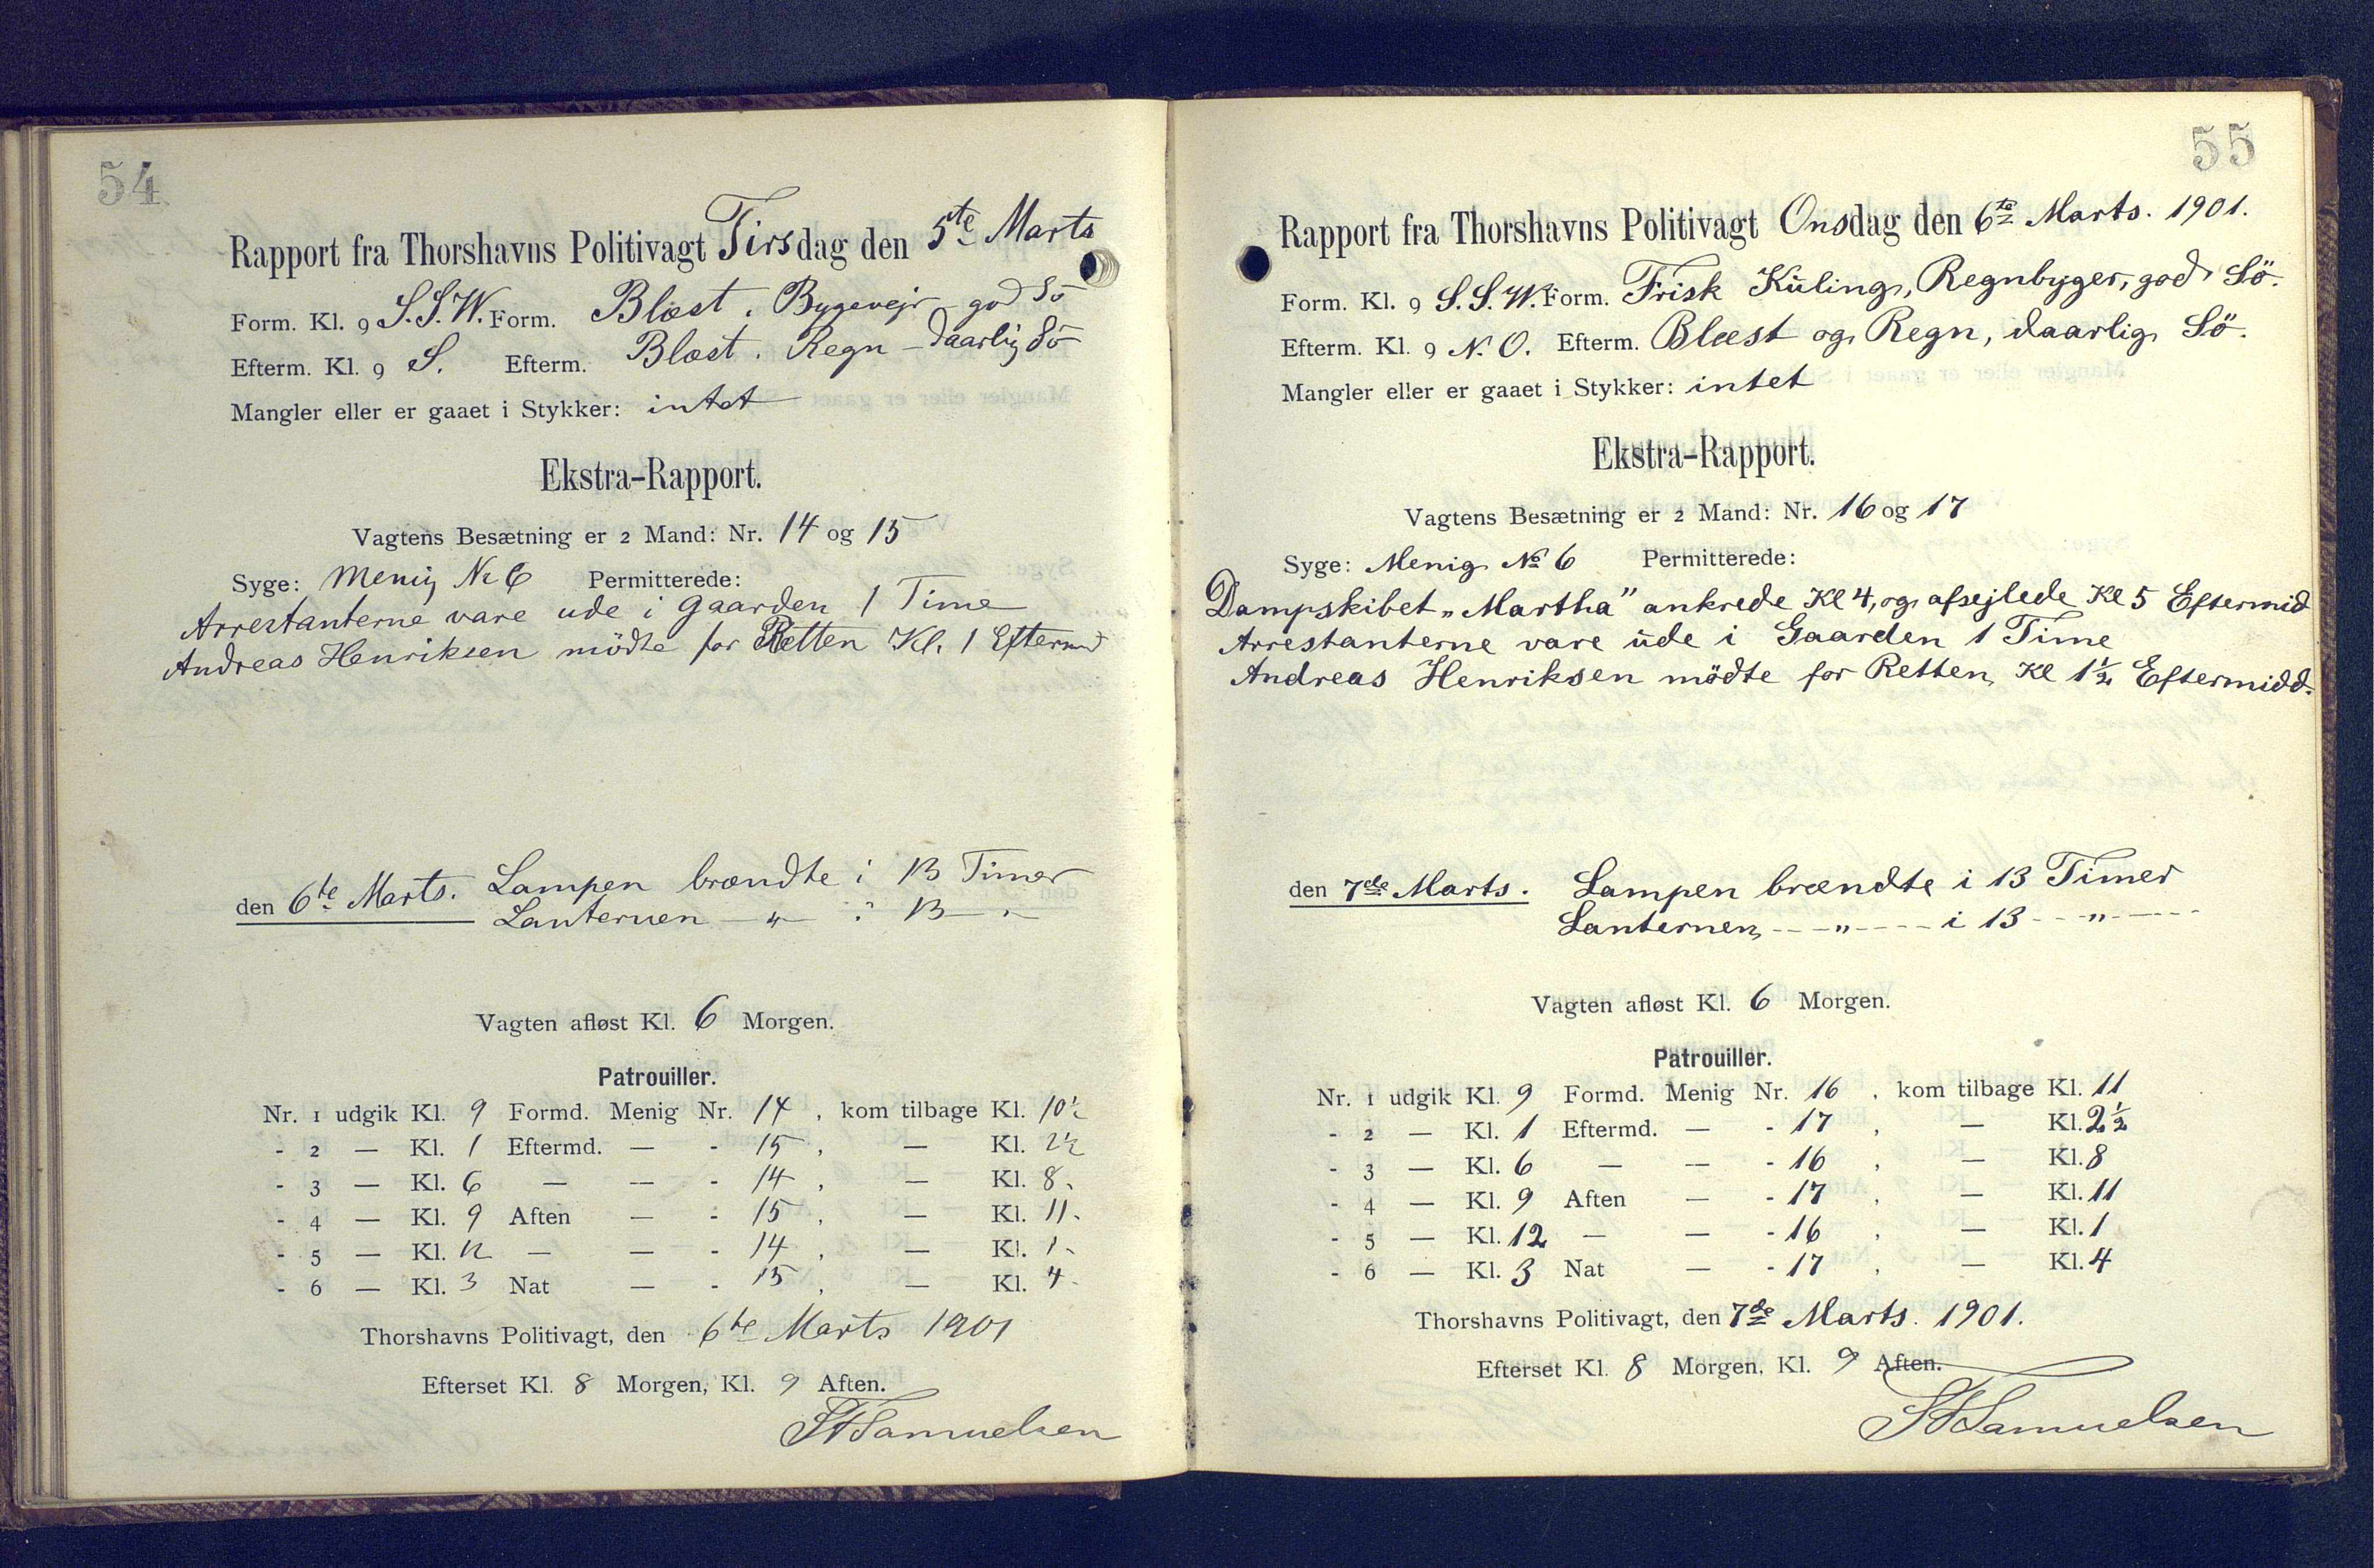 54
Rapport fra Thorshavns Politivagt Tirsdag den 5te Marts
Form. Kl. 9 S.S.W. Form. Blæst. Bygevejr god Sö
Efterm. Kl. 9 S. Efterm. Blæst. Regn – daarlig Sö
Mangler eller er gaaet i Stykker: intet
Ekstra-Rapport.
Vagtens Besætning er 2 Mand: Nr. 14 og 15
Syge: Menig No 6 Permitterede:
Arrestanterne vare ude i Gaarden 1 Time
Andreas Henriksen mödte for Retten Kl. 1 Eftermd
den 6te Marts. Lampen brændte i 13 Timer
Lanternen — " — i 13 — "
Vagten afløst Kl. 6 Morgen.
Patrouiller.
Nr. 1 udgik Kl. 9 Formd. Menig Nr. 14, kom tilbage Kl. 10½
- 2 — Kl. 1 Eftermd. — - 15, — Kl. 2½
- 3 — Kl. 6 — — - 14, — Kl. 8.
- 4 — Kl. 9 Aften — - 15, — Kl. 11.
- 5 — Kl. 12 — — - 14, — Kl. 1.
- 6 — Kl. 3 Nat — - 15, — Kl. 4.
Thorshavns Politivagt, den 6te Marts 1901
Efterset Kl. 8 Morgen, Kl. 9 Aften.
SFSamuelsen
55
Rapport fra Thorshavns Politivagt Onsdag den 6te Marts. 1901.
Form. Kl. 9 S.S.W. Form. Frisk Kuling, Regnbyger, god Sö.
Efterm. Kl. 9 N.O. Efterm. Blæst og Regn, daarlig Sö.
Mangler eller er gaaet i Stykker: intet
Ekstra-Rapport.
Vagtens Besætning er 2 Mand: Nr. 16 og 17
Syge: Menig No 6 Permitterede:
Dampskibet „Martha" ankrede Kl 4, og afsejlede Kl 5 Eftermid
Arrestanterne vare ude i Gaarden 1 Time
Andreas Henriksen mödte for Retten Kl 1½ Eftermidd.
den 7de Marts. Lampen brændte i 13 Timer
Lanternen - - - " - - - - i 13 - - - " - - - -
Vagten afløst Kl. 6 Morgen.
Patrouiller.
Nr. 1 udgik Kl. 9 Formd. Menig Nr. 16, kom tilbage Kl. 11
- 2 — Kl. 1 Eftermd. — - 17, — Kl. 2½
- 3 — Kl. 6 — — - 16, — Kl. 8
- 4 — Kl. 9 Aften — - 17, — Kl. 11
- 5 — Kl. 12 — — - 16, — Kl. 1
- 6 — Kl. 3 Nat — - 17, — Kl. 4
Thorshavns Politivagt, den 7de Marts. 1901.
Efterset Kl. 8 Morgen, Kl. 9 Aften.
SFSamuelsen